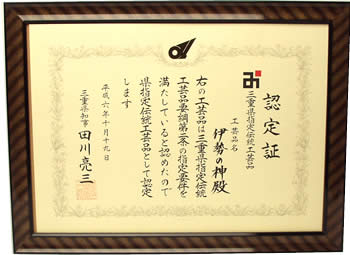 認定証
三重県指定伝統工芸品
工芸品名
伊勢の神殿
右の工芸品は三重県指定伝統
工芸品要綱第二条の指定要件を
満たしていると認めたので
県指定伝統工芸品として認定
します
平成六年十月十九日
三重県知事 田川亮三